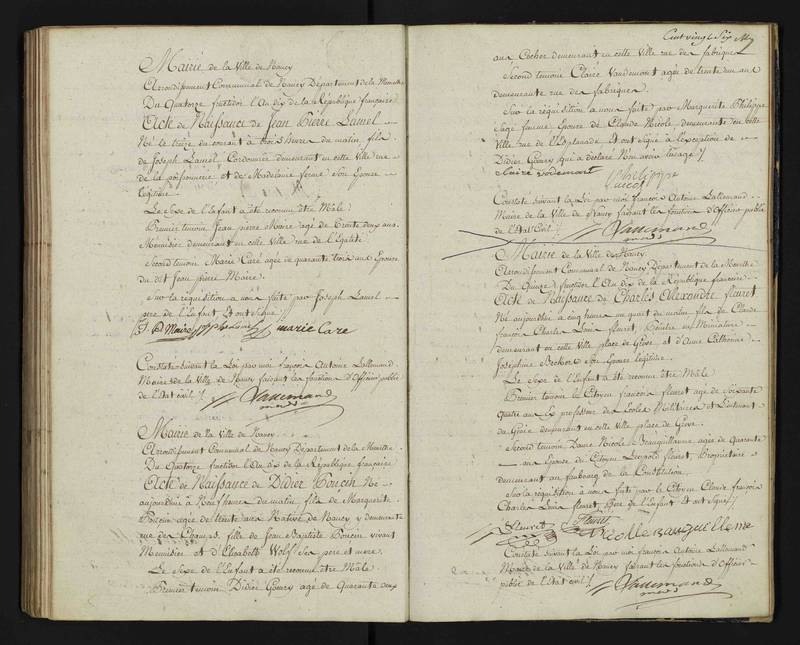 Mairie de la Ville de Nancy
Arrondissement Communal de Nancy Département de la Meurthe
Du Quatorze fructidor l'An dix de la République françoise
Acte de Naissance de Jean Pierre Lamel
Né le treize du courant à trois heures du matin, fils
de Joseph Lamel, Cordonnier demeurant en cette Ville rue
de la poissonnerie et de Madelaine ferme Son Epouse
légitime
Le Sexe de l'Enfant a été reconnu être Mâle
Premier temoin Jean pierre Maire agé de trente deux ans
Menuisier demeurant en cette Ville rue de l'Egalité
Second temoin Marie Caré agée de quarante trois ans Epouse
du dit Jean pierre Maire.
Sur la requisition à nous faite par Joseph Lamel
pere de l'Enfant Et ont signé
J P Maire marie Care
Constaté suivant la Loi par moi françois Antoine Lallemand
Maire de la Ville de Nancy faisant les fonctions d'Officier public
de l'Etat civil
Lallemand
Mairie de la Ville de Nancy
Arrondissement Communal de Nancy Département de la Meurthe
Du Quatorze fructidor l'An dix de la République françoise
Acte de Naissance de Didier Poucin Né
aujourdhui à Neuf heures du matin, fils de Marguerite
Poucin agée de trente ans Native de Nancy y demeurante
rue des Champs, fille de Jean Baptiste Poucin vivant
Menuisier et d'Elisabeth Wolf Ses pere et mere.
Le Sexe de l'Enfant a été reconnu être Mâle.
Premier temoin Didier Goury agé de Quarante deux
Cent vingt Six
ans Cocher demeurant en cette Ville rue de fabriques
Second temoin Claire Vaudemont agée de trente un ans
demeurante rue des fabriques.
Sur la réquisition à nous faite par Marguerite Philippe
Sage femme Epouse de Claude Nicole demeurante en cette
Ville rue de l'Esplanade Et ont signé à l'exception de
Didier Goury qui a déclaré Non avoir l'usage
Claire vodemont philippe
Constaté suivant la Loi par moi françois Antoine Lallemand
Maire de la Ville de Nancy faisant les fonctions d'Officier public
de l'Etat Civil
Lallemand
Mairie de la Ville de Nancy
Arrondissement Communal de Nancy Département de la Meurthe
Du Quinze fructidor l'An dix de la République françoise
Acte de Naissance de Charles Alexandre fleuret
Né aujourdhui à cinq heures un quart du matin fils de Claude
françois Charles Louis fleuret, Peintre en Miniature
demeurant en cette Ville place de Grève et d'Anne Catherine
Josephine Son Epouse légitime.
Le Sexe de l'Enfant a été reconnu être Mâle
Premier temoin le Citoyen françois fleuret agé de Soixante
Quatre ans Ex professeur des Ecoles Militaires et Lieutenant
du Génie demeurant en cette Ville place de Grève.
Second temoin Dame Nicole Beauguillaume agée de Quarante
ans Epouse du Citoyen Leopold fleuret, Propriétaire
demeurant au faubourg de la Constitution.
Sur la réquisition à nous faite par le Citoyen Claude françois
Charles Louis fleuret, Pere de l'Enfant Et ont signé
fleuret fleuret
Constaté suivant la Loi par moi françois Antoine Lallemand
Maire de la Ville de Nancy faisant les fonctions d'Officier
public de l'Etat civil
Lallemand